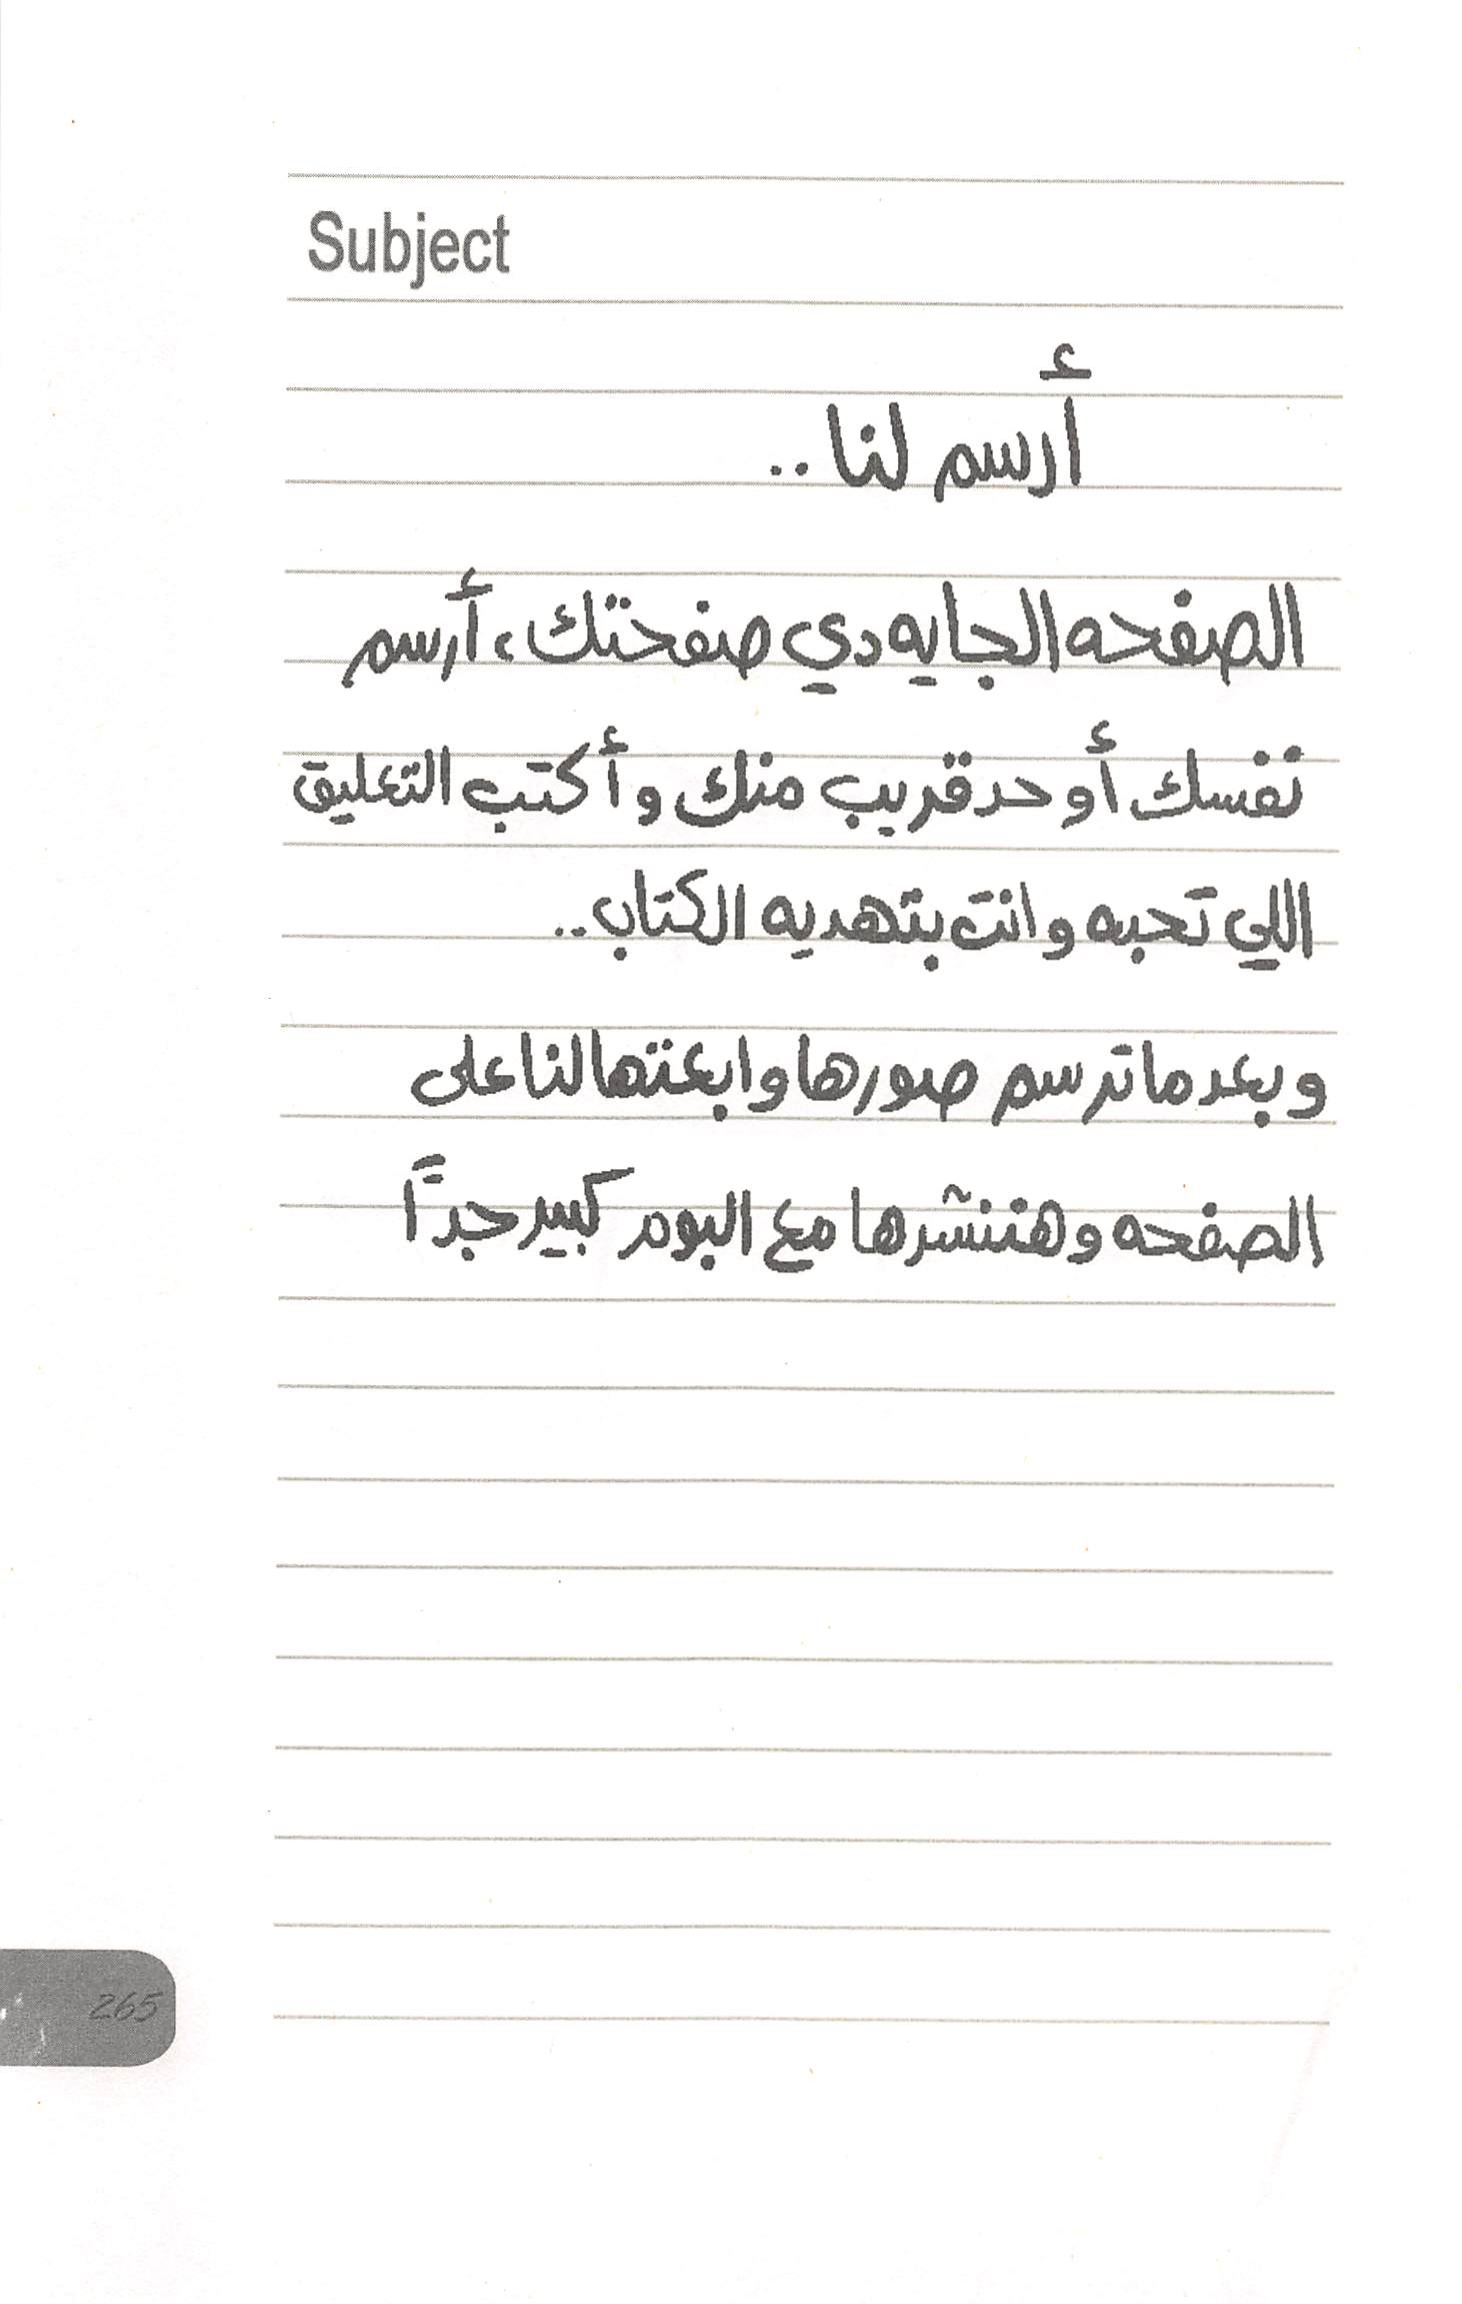 Subject
أرسم لنا ..
الصفحه الجايه دي صفحتك، أرسم
نفسك أو حد قريب منك وأكتب التعليق
اللي تحبه وانت بتهديه الكتاب..
وبعد ما ترسم صورها وابعتها لنا على
الصفحه وهننشرها مع البوم كبير جداً
265